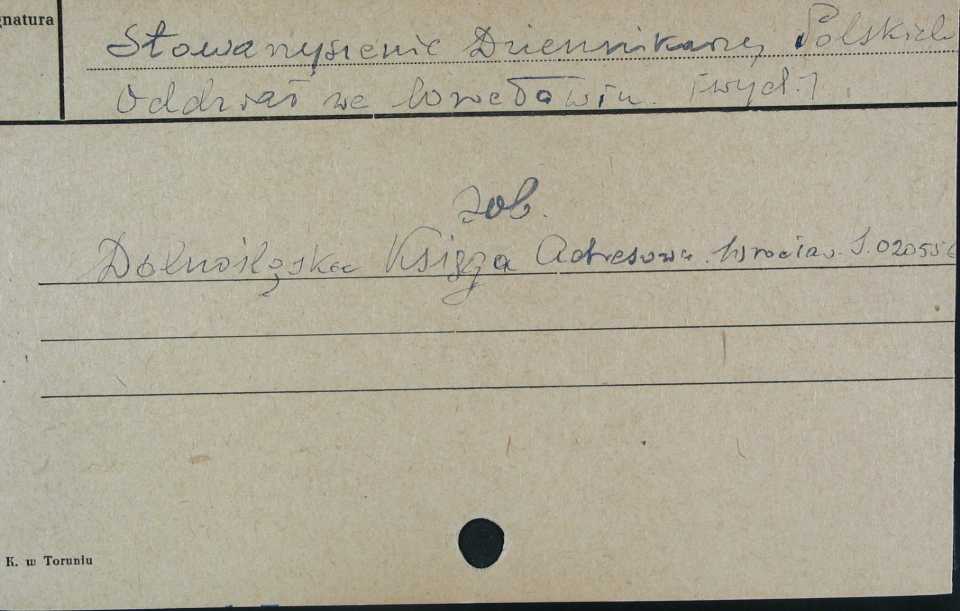 gnatura
Stowarzyszenie Dziennikarzy Polskich
Oddział we Wrocławiu. [wyd.]
zob.
Dolnośląska Księga Adresowa. Wrocław. S. 020556
K. w Toruniu